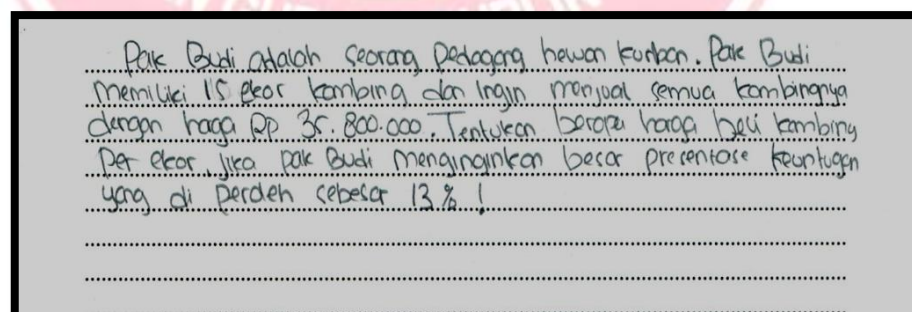 Pak Budi adalah seorang pedagang hewan kurban. Pak Budi
memiliki 15 ekor kambing dan ingin menjual semua kambingnya
dengan haga Rp 35.800.000. Tentukan berapa harga beli kambing
Per ekor, jika pak Budi menginginkan besar presentase keuntugan
yang di peroleh sebesar 13% !